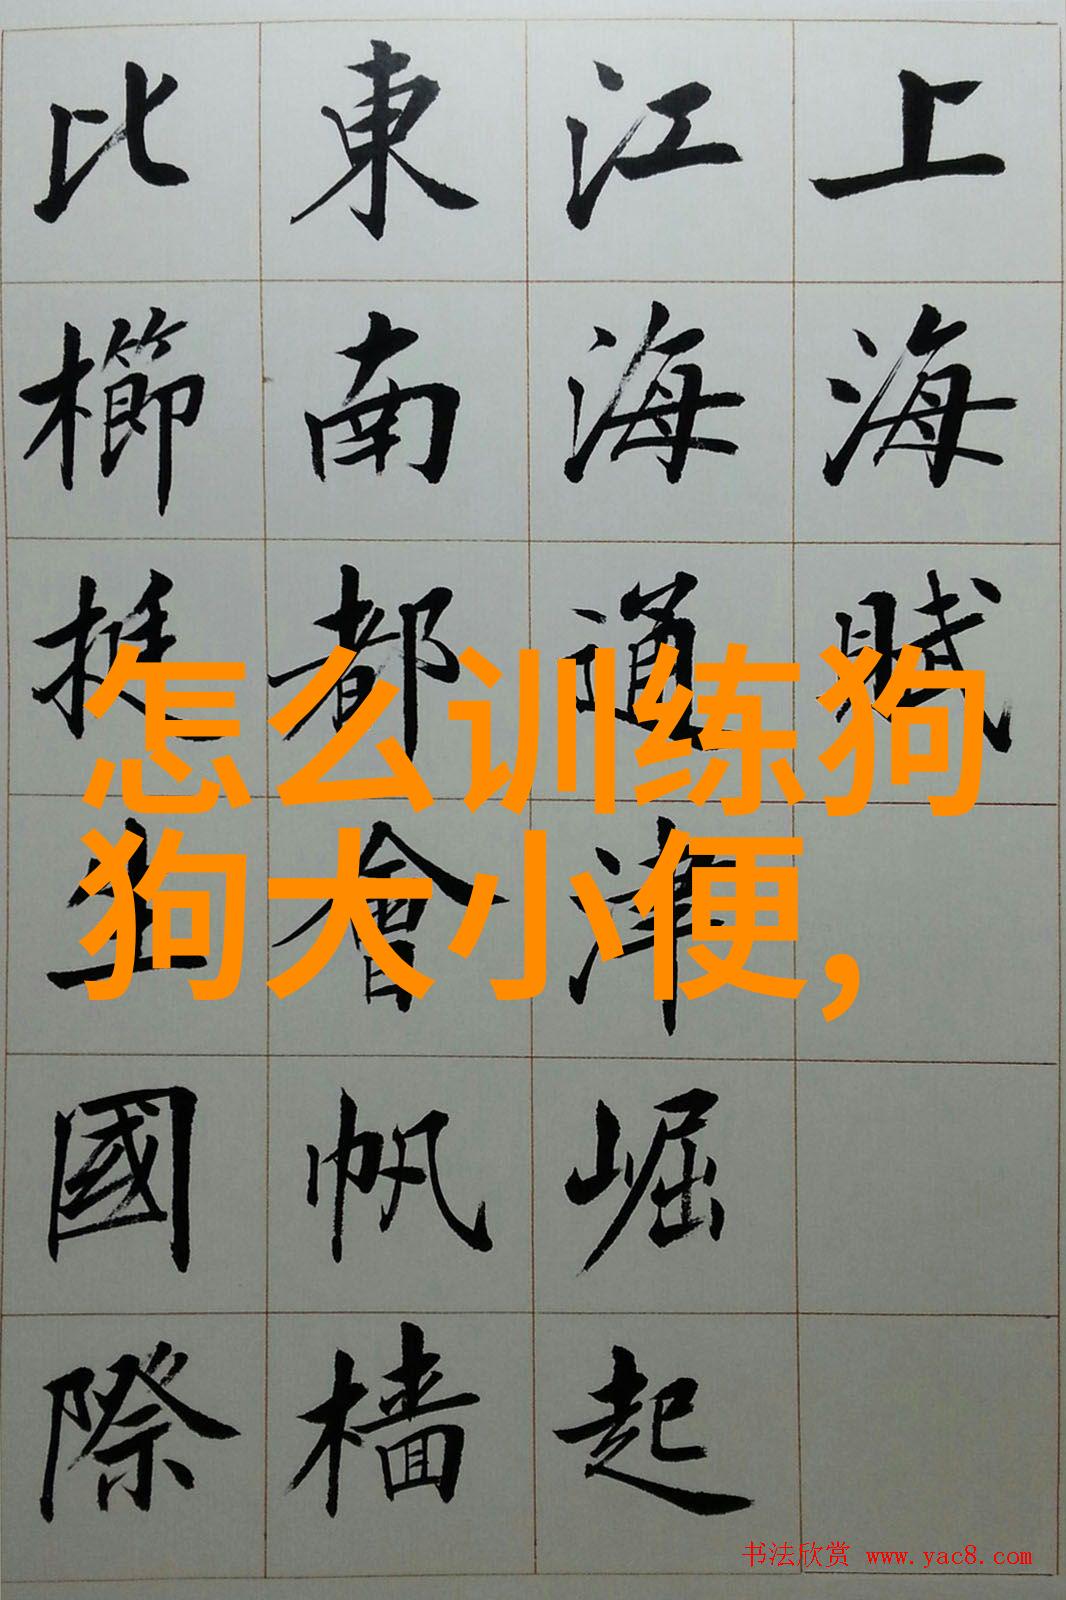 上海賦
江海通津崛起
東南都會帆檣
比櫛挺生國際
怎么训练狗
狗大小便,
书法欣赏 www.yac8.com